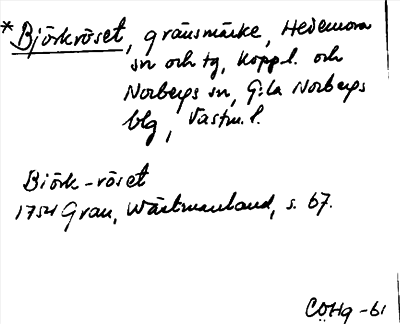 *Björkröset, gränsmärke, Hedemora
sn och tg, Koppl. och
Norbergs sn, G:la Norbergs
blg, Västm. l.
Björk-röset
1754 Grau, Wästmanland, s. 67.
CÖHg -61